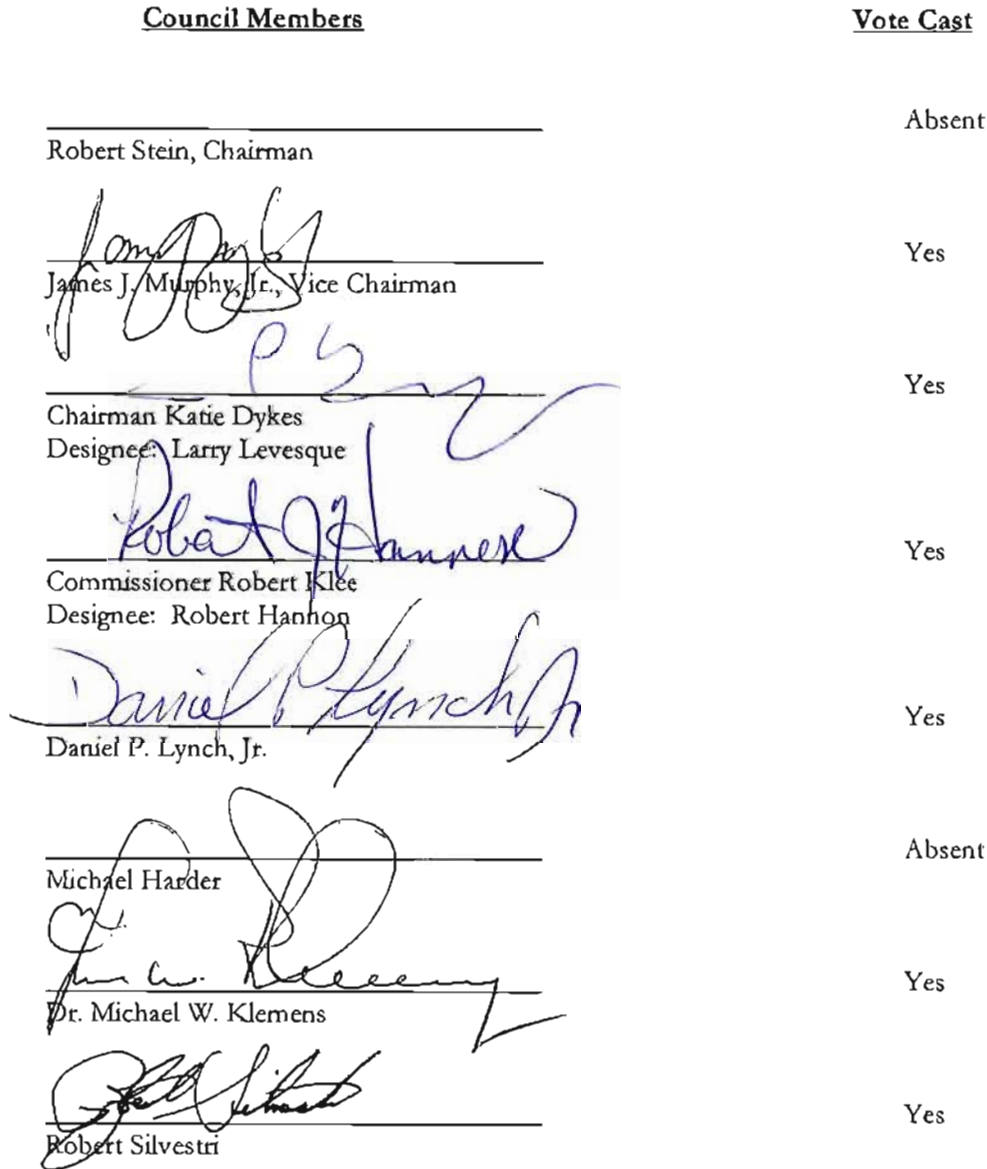 Council Members Vote Cast
Absent
Robert Stein, Chairman
Yes
James J. Murphy, Jr., Vice Chairman
Yes
Chairman Katie Dykes
Designee: Larry Levesque
Robert J Hannon Yes
Commissioner Robert Klee
Designee: Robert Hannon
Daniel P Lynch Jr Yes
Daniel P. Lynch, Jr.
Absent
Michael Harder
Yes
Dr. Michael W. Klemens
Robert Silvestri Yes
Robert Silvestri